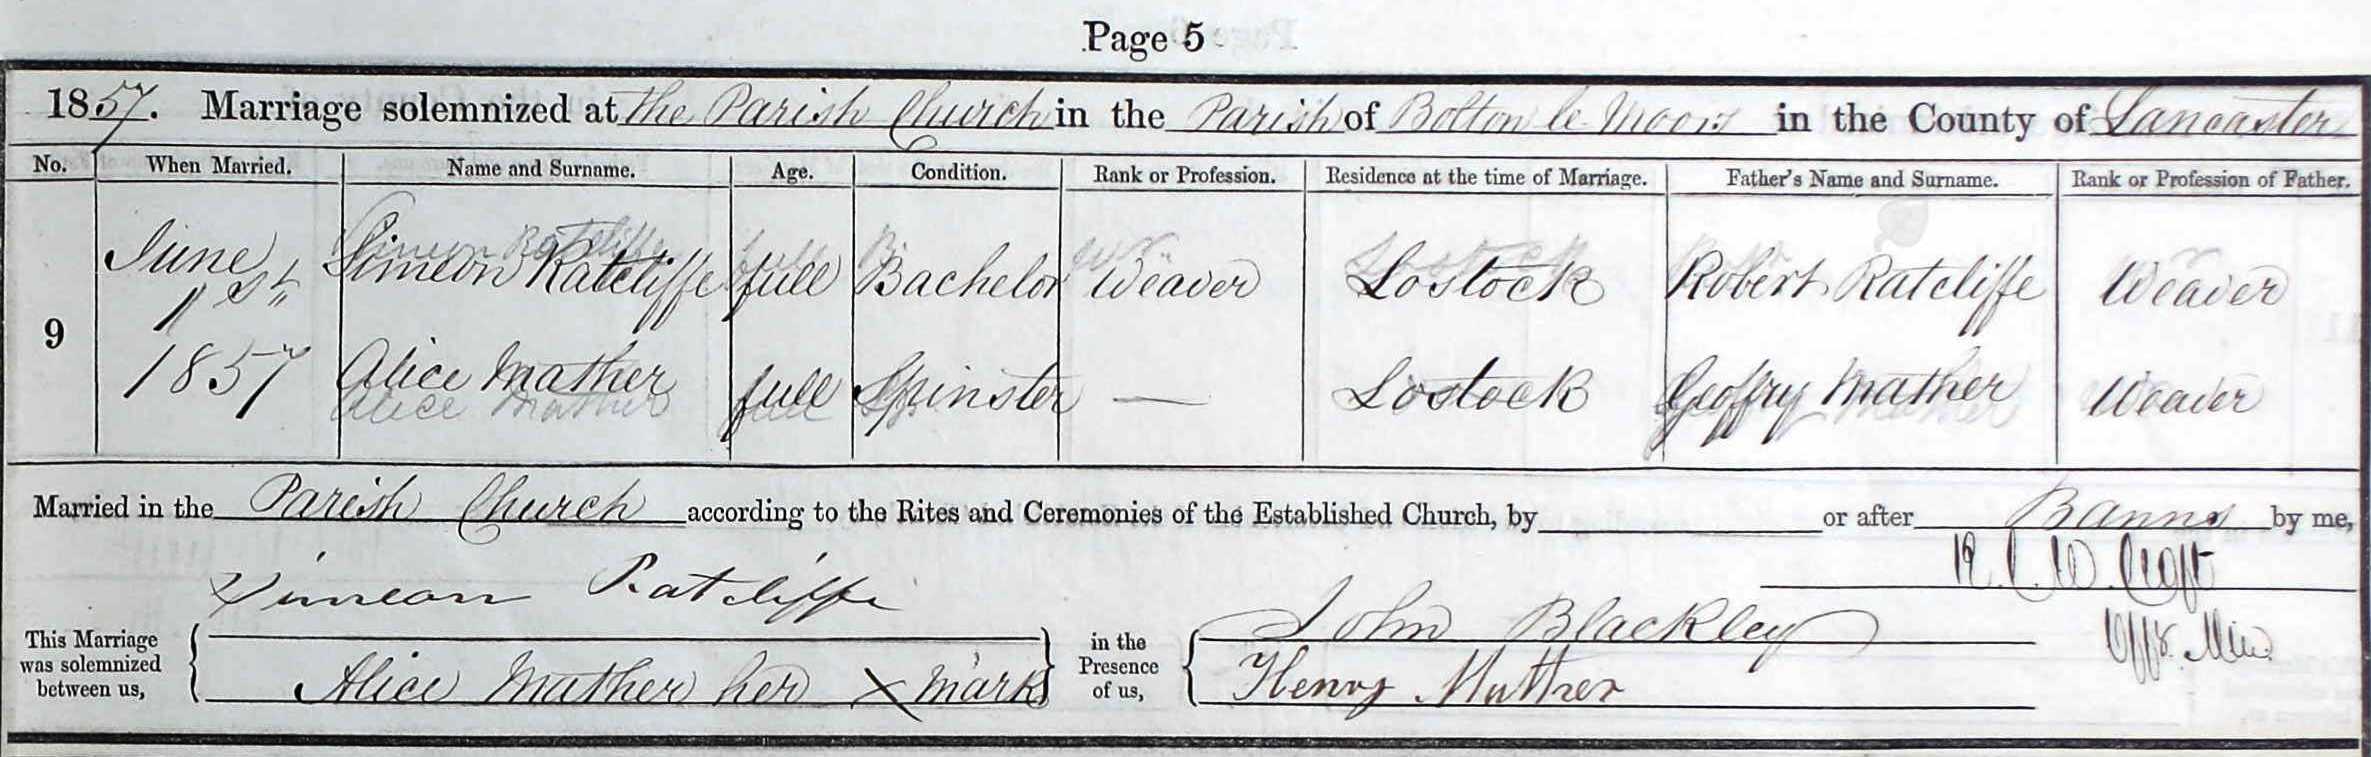 Page 5
1857. Marriage solemnized at the Parish Church in the Parish of Bolton le Moors in the County of Lancaster
No. When Married. Name and Surname. Age. Condition. Rank or Profession. Residence at the time of Marriage. Father's Name and Surname. Rank or Profession of Father.
9 June 1st 1857 Simeon Ratcliffe full Bachelor Weaver Lostock Robert Ratcliffe Weaver
Alice Mather full Spinster — Lostock Geoffry Mather Weaver
Married in the Parish Church according to the Rites and Ceremonies of the Established Church, by or after Banns by me,
R. L. W. Croft
Offg. Min.
This Marriage was solemnized between us,
Simeon Ratcliffe
Alice Mather her X mark
in the Presence of us,
John Blackley
Henry Mather